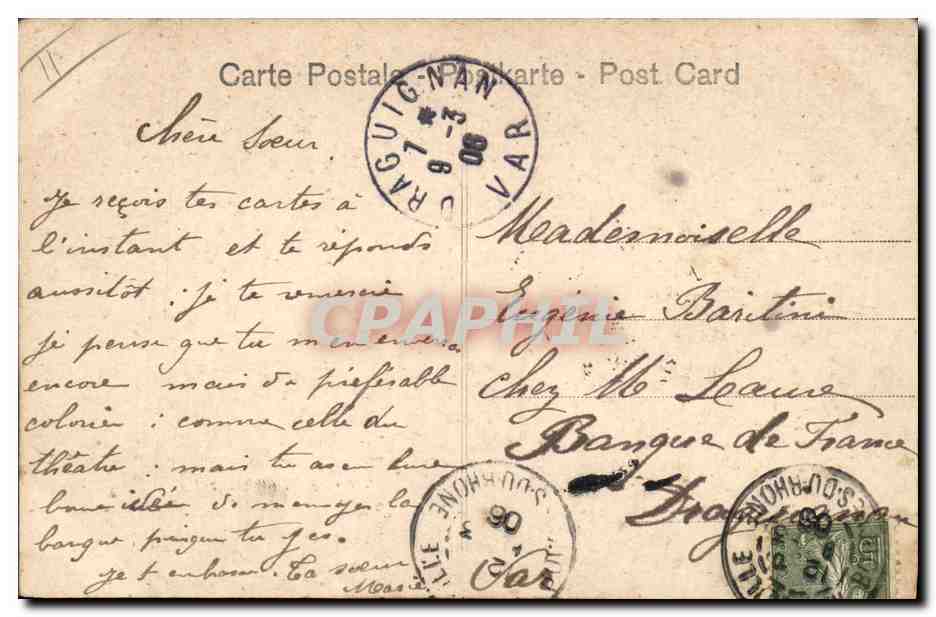 Carte Postale - Postkarte - Post Card
DRAGUIGNAN
VAR
7 * 9 -3 06
Chère Sœur.
Je reçois tes cartes à
l'instant et te réponds
aussitôt : je te remercie
je pense que tu m'en enverras
encore mais de préférable
colorier : comme celle du
théâtre : mais tu as eu une
bonne idée de
barque puisque tu y es.
Je t'embrasse. Ta sœur
Marie
Mademoiselle
Eugénie Baritini
chez Mr Laure
Banque de France
Draguignan
Var
CPAPHIL
S-DU-RHONE
06
ES-DU-RHONE